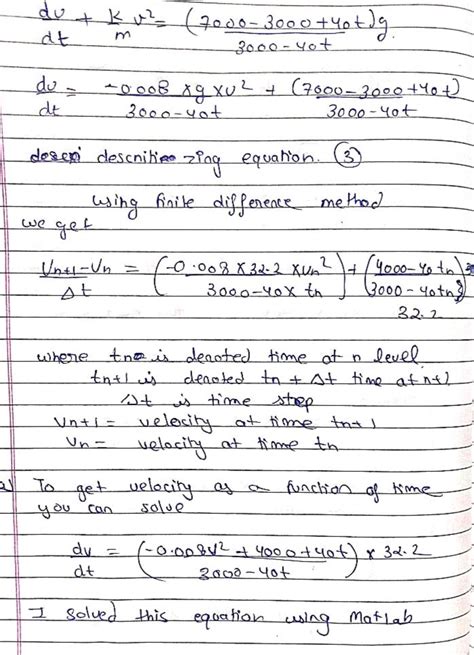 dv/dt + k/m v² = (7000-3000+40t)g / 3000-40t
dv/dt = -0.008 × g × v² / 3000-40t + (7000-3000+40t) / 3000-40t
descritizing equation. (3)
Using finite difference method
we get
Vn+1 - Vn / Δt = (-0.008 × 32.2 × Vn² / 3000-40× tn) + (4000-40 tn / 3000-40tn) 32.2
where tn is denoted time at n level
tn+1 is denoted tn + Δt time at n+1
Δt is time step
Vn+1 = velocity at time tn+1
Vn = velocity at time tn
To get velocity as a function of time
you can solve
dv/dt = (-0.008V² + 4000 + 40t / 3000-40t) × 32.2
I solved this equation using Matlab